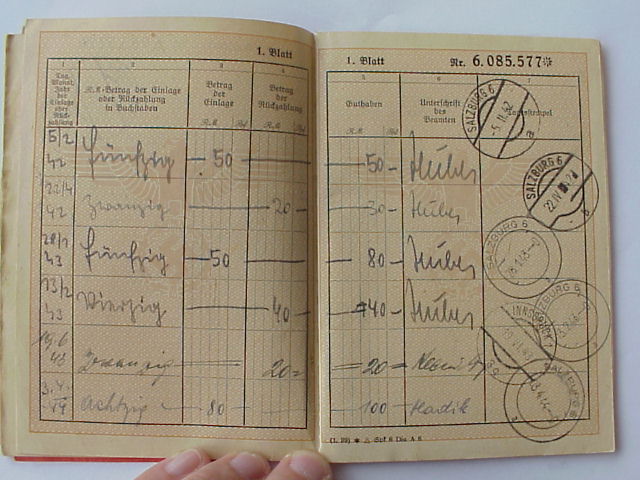 1. Blatt
1. Blatt Nr. 6.085.577*
1 2 3 4 5 6 7
Tag, Monat, Jahr der Einlage oder Rückzahlung
R.M.-Betrag der Einlage oder Rückzahlung in Buchstaben
Betrag der Einlage
Betrag der Rückzahlung
Guthaben
Unterschrift des Beamten
Tagesstempel
R.M. Rpf R.M. Rpf R.M. Rpf
5/2 42 fünfzig — 50 — — 50 — Huber
22/4 42 Zwanzig — 20 — — 30 — Huber
28/1 43 fünfzig — 50 — — 80 — Huber
13/2 43 Vierzig — 40 — — 40 — Huber
19.6 43 Zwanzig = = 20 = = 20 =
3.4. 44 Achtzig — 80 — 100 — Hadik
SALZBURG 6 -5.II.42 a
SALZBURG 6 22.IV
SALZBURG 6
SALZBURG 6
INNSBRUCK
SALZBURG 6